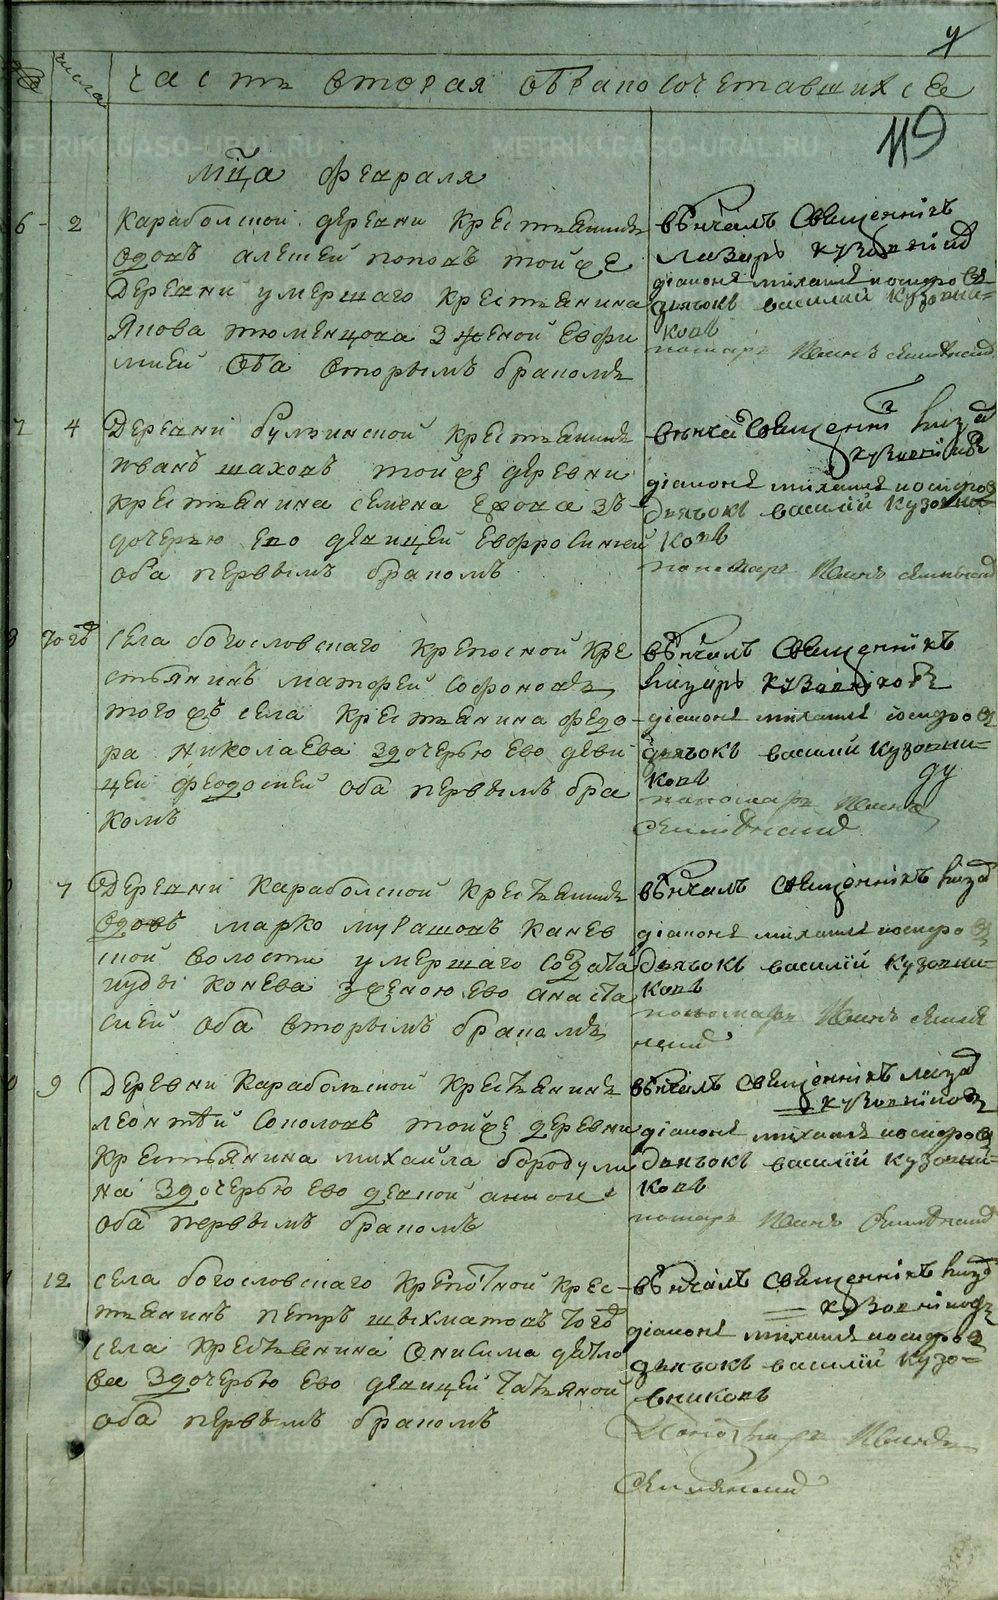 числа
часть вторая обракосочетавшихся
119
мца февраля
6 - 2 Караболской деревни крестьянинъ
вдовъ алексей поповъ тойже
деревни умершаго крестьянина
Якова тюменцова зженой евфи
миеи оба вторымъ бракомъ
вѣнчалъ Священникъ
лазарь кузовников
діаконъ михаилъ
дьячокъ василий Кузовни-
ковъ
понамарь Иванъ
7 4 Деревни булзинской крестьянинъ
иванъ шаховъ тойже деревни
крестьянина семена ежова зъ
дочерью ево девицей евфросинией
оба первымъ бракомъ
вѣнчал Священни лазар
кузовников
діаконъ михаилъ
дьячокъ василий Кузовни-
ковъ
понамарь Иванъ
8 тогож села богословскаго крепосной кре
стьянинъ матфей Софоновъ
тогожъ села крестьянина федо-
ра Николаева здочерью ево деви
цей феодосией оба первымъ бра
комъ
вѣнчалъ Священникъ
лазарь кузовниковъ
діаконъ михаилъ
дьячокъ василий Кузовни-
ковъ
понамарь Иванъ
7 Деревни Караболской крестьянинъ
вдовъ марко мурашовъ канев
ской волости умершаго солдата
иуды конева зженою ево анаста
сией оба вторымъ бракомъ
вѣнчалъ священникъ лазар
діаконъ михаилъ
дьячокъ василий Кузовни-
ковъ
пономарь Иванъ
9 Деревни Карабольской крестьянинъ
леонтей Соколовъ тойже деревни
крестьянина михаила бородули
на здочерью ево девкой анной
оба первымъ бракомъ
вѣнчалъ Священникъ лазар
кузовниковъ
діаконъ михаилъ
дьячокъ василий Кузовни-
ковъ
понамарь Иванъ
12 села богословскаго крепосной крес-
тьянинъ петръ шыхматовъ тогож
села крестьянина Онисима дятло
ва здочерью ево девицей татьяной
оба первымъ бракомъ
вѣнчалъ Священникъ лазар
кузовниковъ
діаконъ михаилъ
дьячокъ василий Кузо-
вниковъ
Понамарь Иванъ
METRIKI.GASO-URAL.RU